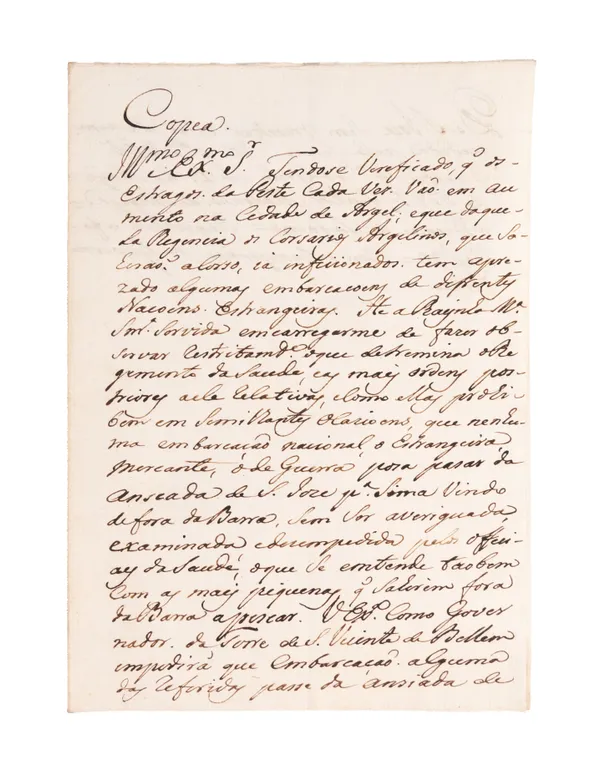 Copea.
Ill.mo Ex.mo S.r Tendose Verefícado, q̃ os
Estragos. da Peste Cada Ver. Vaõ. em au
mento na Cidade de Argel; eque daque-
la Regencia os Corsarios Argelinos, que Sa-
hiraõ. a Corso, ia inficionados. tem apre-
zado algumas embarcacoens de difrentes
Nacoens. Estrangeiras. He a Raynha M.a
Snr.a Servida emcarregarme de fazer ob
servar restritam.e oque detremina o Re
gemento da Saude, e as mais ordens pos-
triores a ele Relativas, Como Elas prohi-
bem em Semilhantes Ocazioens, que nenhu-
ma embarcacaõ nacional, o Estrangeira
Mercante, ó de Guerra, posa pasar da
anseada de S. Joze p.a Sima Vindo
de fora da Barra, Sem Ser averiguada,
examinada edezempedida pelos offici-
ais da Saude, oque se entende taobem
Com as mais pequenas q̃ Sahirem fora
da Barra apescar. V.Ex.a Como Gover
nador. da Torre de S. Vicente de Bellem
impidirá que Embarcacaõ. alguma
das referidas passe da ansiada de